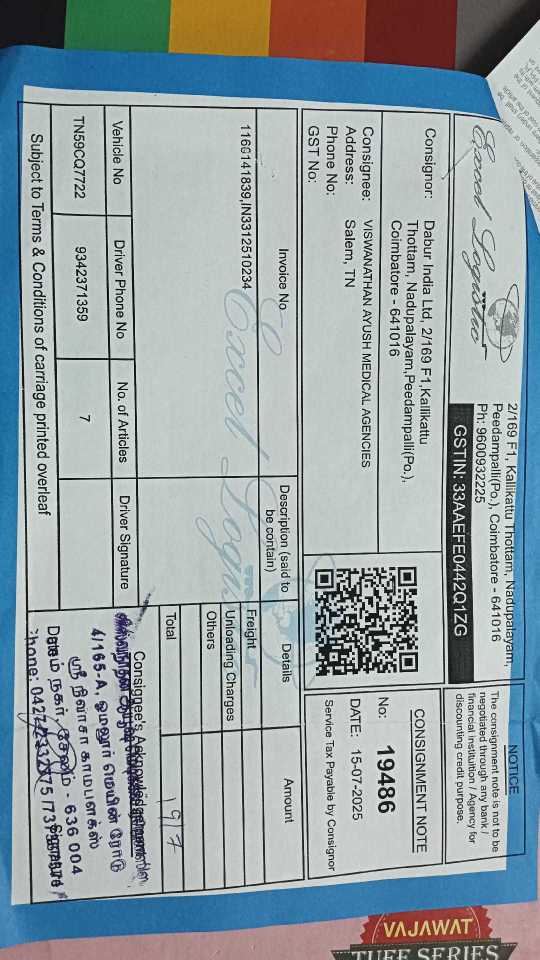 Excel Logistic
2/169 F1, Kallikattu Thottam, Nadupalayam,
Peedampalli(Po.), Coimbatore - 641016
Ph: 9600932225
GSTIN: 33AAEFE0442Q1ZG
NOTICE
The consignment note is not to be
negotiated through any bank /
financial instituition / Agency for
discounting credit purpose.
Consignor: Dabur India Ltd, 2/169 F1,Kallikattu
Thottam, Nadupalayam,Peedampalli(Po.),
Coimbatore - 641016
Consignee: VISWANATHAN AYUSH MEDICAL AGENCIES
Address: Salem, TN
Phone No:
GST No:
CONSIGNMENT NOTE
No: 19486
DATE: 15-07-2025
Service Tax Payable by Consignor
Invoice No
Description (said to
be contain)
Details
Amount
1160141839,IN3312510234
Excel Logistic
Freight
Unloading Charges
Others
Total
197
Vehicle No
Driver Phone No
No. of Articles
Driver Signature
TN59CQ7722
9342371359
7
Consignee's
4/165-A, ஓமலூர் மெயின் ரோடு
ஸ்ரீ நிவாசா காம்பளக்ஸ்
நகர், சேலம் - 636 004
Signature
Subject to Terms & Conditions of carriage printed overleaf
VAJAWAT
TUFF SERIES